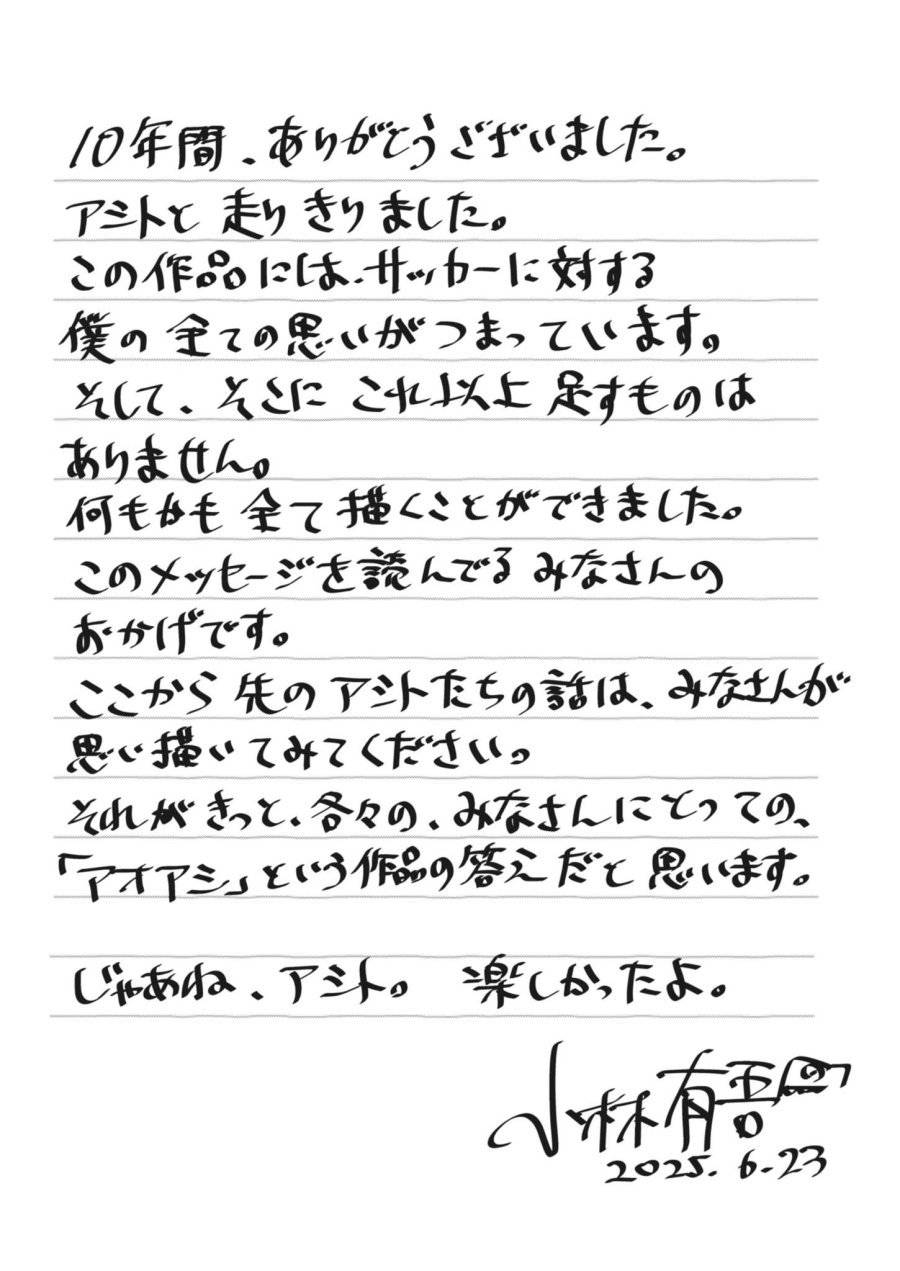 10年間、ありがとうございました。
アシトと走りきりました。
この作品には、サッカーに対する
僕の全ての思いがつまっています。
そして、そこにこれ以上足すものは
ありません。
何もかも全て描くことができました。
このメッセージを読んでるみなさんの
おかげです。
ここから先のアシトたちの話は、みなさんが
思い描いてみてください。
それがきっと、各々の、みなさんにとっての、
「アオアシ」という作品の答えだと思います。
じゃあね、アシト。 楽しかったよ。
小林有吾
2025.6.23